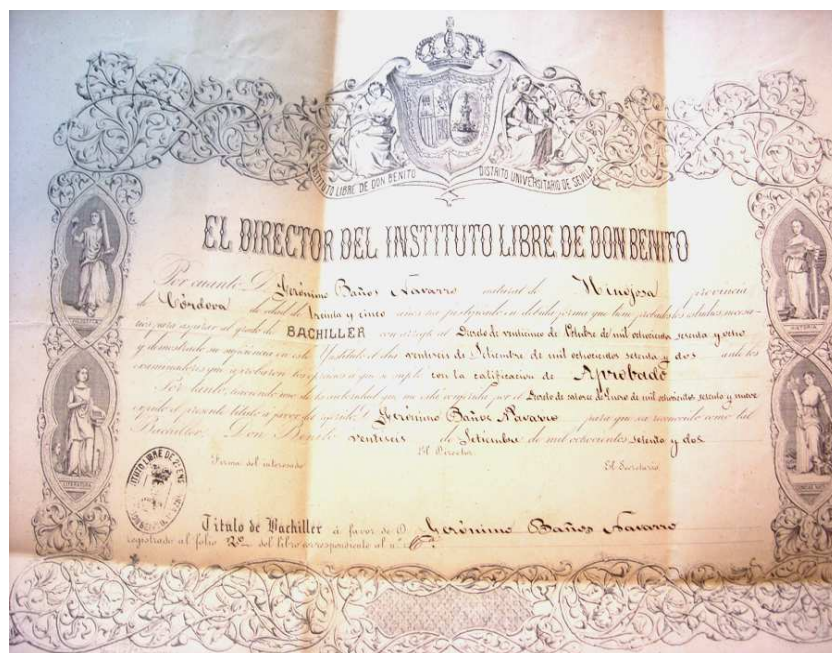 INSTITUTO LIBRE DE DON BENITO DISTRITO UNIVERSITARIO DE SEVILLA
EL DIRECTOR DEL INSTITUTO LIBRE DE DON BENITO
Por cuanto D. Gerónimo Baños Navarro natural de Hinojosa provincia
de Córdova de edad de treinta y cinco años ha justificado en debida forma que tiene probados los estudios necesa-
rios para aspirar al grado de BACHILLER con arreglo al Decreto de ventiuno de Octubre de mil ochocientos sesenta y ocho
y demostrado su suficiencia en este Instituto el día ventiseis de Setiembre de mil ochocientos setenta y dos ante los
examinadores que aprobaron los ejercicios con la calificacion de Aprobado
Por tanto, usando de la autoridad que me está conferida por el Decreto de catorce de Enero de mil ochocientos sesenta y nueve
expido el presente título á favor del D. Gerónimo Baños Navarro para que sea reconocido como tal
Bachiller. Don Benito ventiseis de Setiembre de mil ochocientos setenta y dos
El Director
Firma del interesado
El Secretario
Título de Bachiller á favor de D. Gerónimo Baños Navarro
registrado al folio del libro correspondiente al nº
LITERATURA
HISTORIA